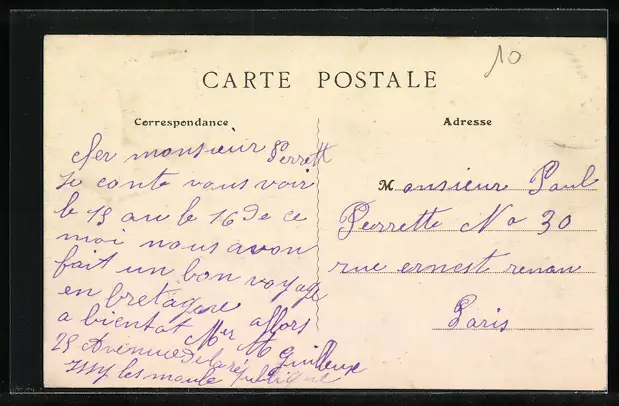 10
CARTE POSTALE
Correspondance
cher monsieur Perrett
Je conte vous voir
le 15 au le 16 de ce
moi nous avon
fait un bon voyage
en bretagne
a bientot Mer
M Guilleux
25 Avenue de la république
Issy les moule
Adresse
Monsieur Paul
Perrette No 30
rue ernest renan
Paris